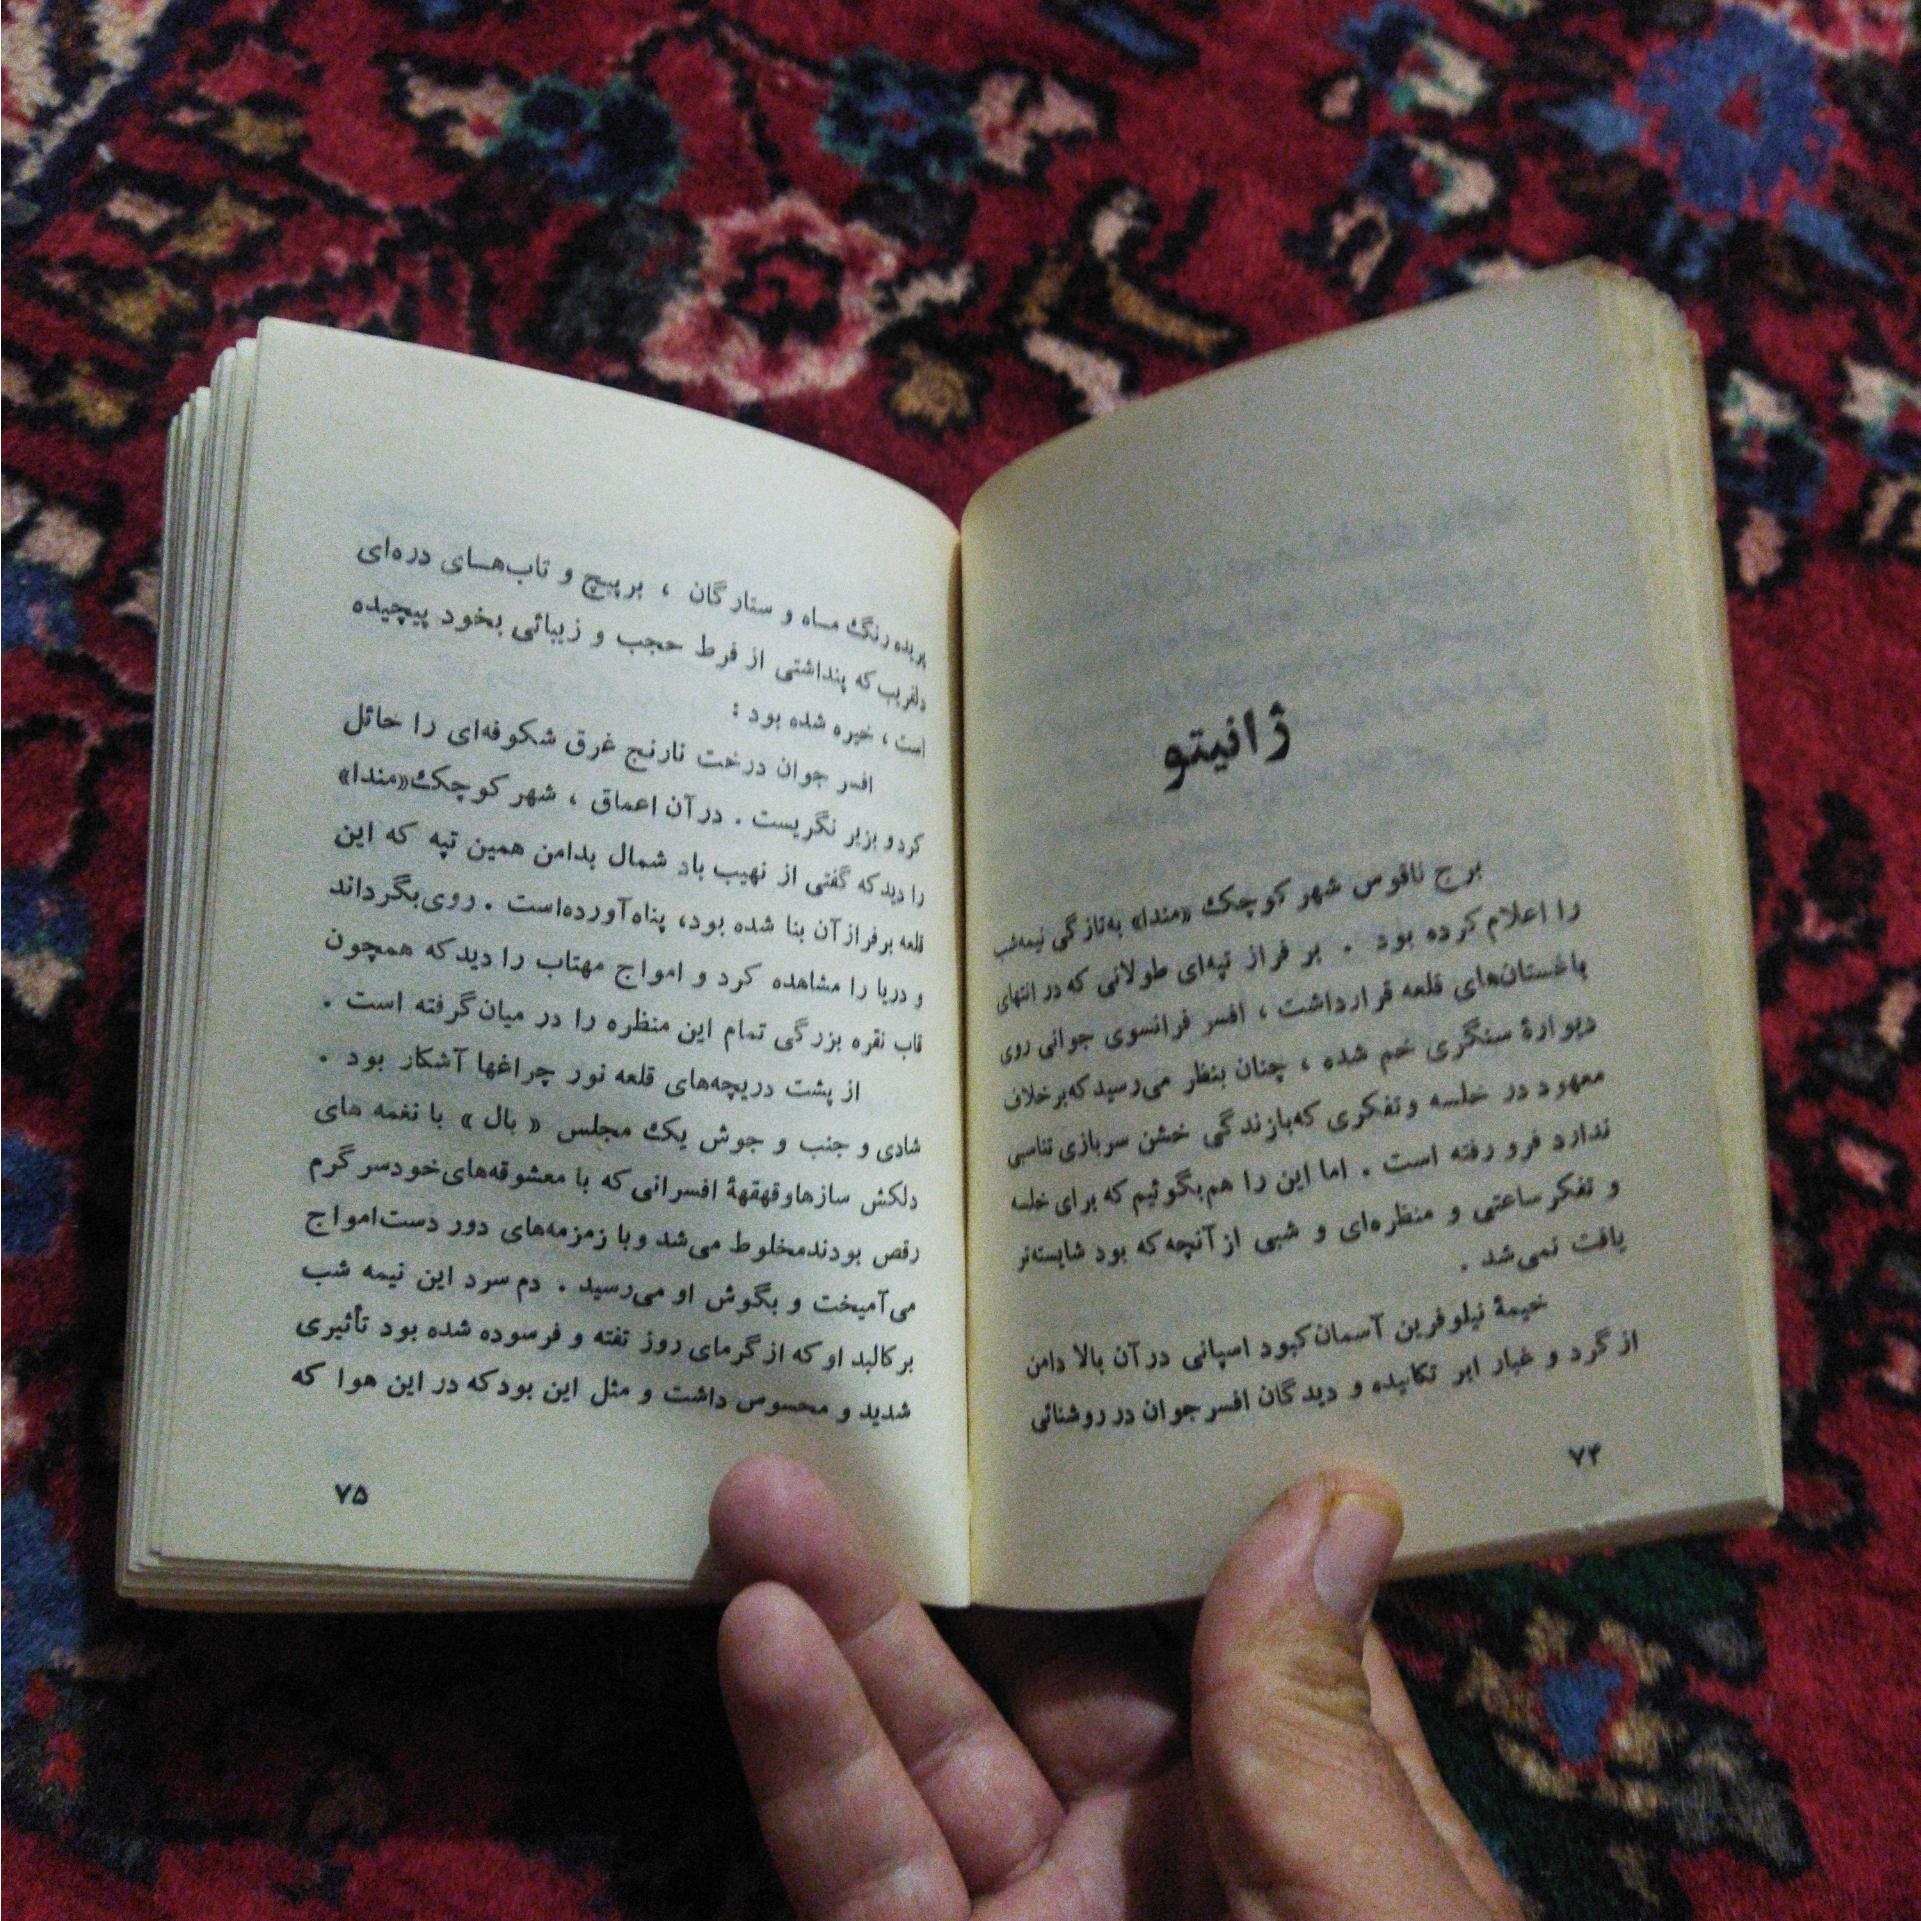 ژانیتو
برج ناقوس شهر کوچک «مندا» به‌تازگی نیمه‌شب
را اعلام کرده بود . بر فراز تپه‌ای طولانی که در انتهای
باغستان‌های قلعه قرارداشت ، افسر فرانسوی جوانی روی
دیوارهٔ سنگری خم شده ، چنان بنظر می‌رسید که برخلاف
معهود در خلسه و تفکری که بازندگی خشن سربازی تناسبی
ندارد فرو رفته است . اما این را هم بگوئیم که برای خلسه
و تفکر ساعتی و منظره‌ای و شبی از آنچه که بود شایسته‌تر
یافت نمی‌شد .
خیمهٔ نیلوفرین آسمان کبود اسپانی در آن بالا دامن
از گرد و غبار ابر تکانیده و دیدگان افسر جوان در روشنائی
۷۴
پریده رنگ ماه و ستارگان ، بر پیچ و تاب‌هسای دره‌ای
دلفریب که پنداشتی از فرط حجب و زیبائی بخود پیچیده
است ، خیره شده بود :
افسر جوان درخت نارنج غرق شکوفه‌ای را حائل
کرد و بزیر نگریست . در آن اعماق ، شهر کوچک «مندا»
را دید که گفتی از نهیب باد شمال بدامن همین تپه که این
قلعه برفراز آن بنا شده بود، پناه آورده‌است . روی بگرداند
و دریا را مشاهده کرد و امواج مهتاب را دید که همچون
قاب نقره بزرگی تمام این منظره را در میان گرفته است .
از پشت دریچه‌های قلعه نور چراغها آشکار بود .
شادی و جنب و جوش یک مجلس « بال » با نغمه های
دلکش سازها و قهقههٔ افسرانی که با معشوقه‌های خود سرگرم
رقص بودند مخلوط می‌شد و با زمزمه‌های دور دست امواج
می‌آمیخت و بگوش او می‌رسید . دم سرد این نیمه شب
بر کالبد او که از گرمای روز تفته و فرسوده شده بود تأثیری
شدید و محسوس داشت و مثل این بود که در این هوا که
۷۵